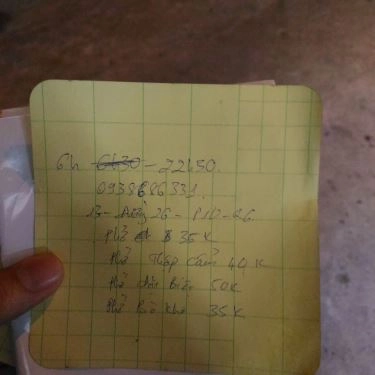 6h 6h30 - 22h30.
0938686331.
13 - Đường 26 - P10 - Q6.
Phở 35K
Phở Thập cẩm 40K
Phở đặc biệt 50K
Phở Bò kho 35K